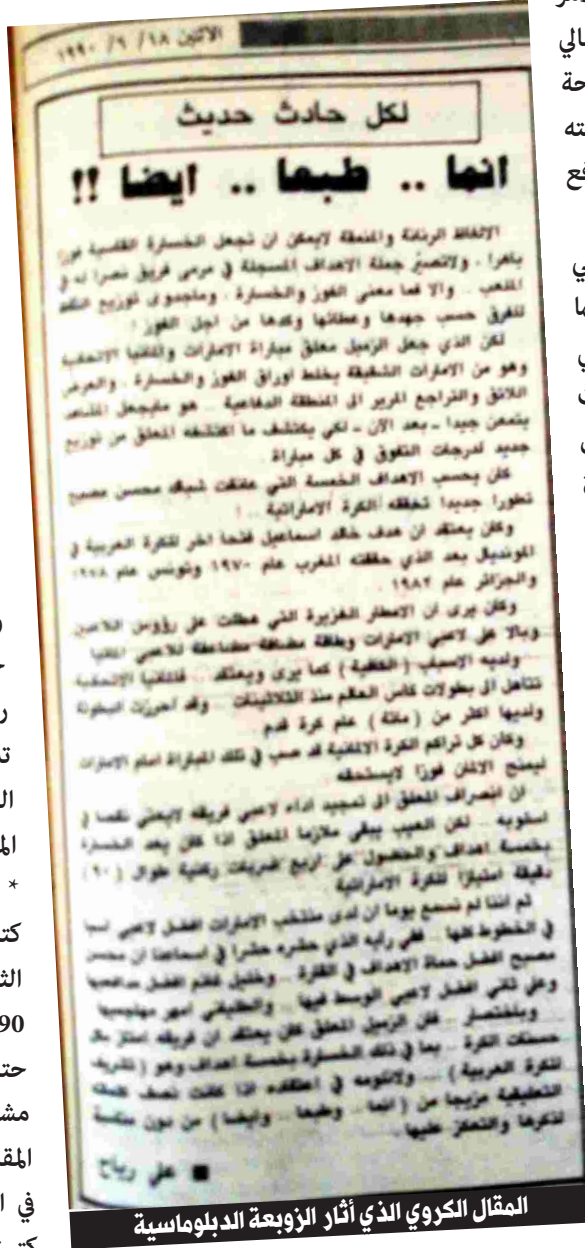 الاثنين ١٨/ ٦/ ١٩٩٠
لكل حادث حديث
انما .. طبعا .. ايضا !!
الالفاظ الرنانة والمنمقة لايمكن ان تجعل الخسارة القاسية فوزا
باهرا . ولاتصيّر جملة الاهداف المسجلة في مرمى فريق نصرا له في
الملعب .. والا فما معنى الفوز والخسارة . وماجدوى توزيع النقط
للفرق حسب جهدها وعطائها وكدها من اجل الفوز !
لكن الذي جعل الزميل معلق مباراة الامارات والمانيا الاتحادية
وهو من الامارات الشقيقة يخلط اوراق الفوز والخسارة . والعرض
اللائق والتراجع المرير الى المنطقة الدفاعية .. هو مايجعل المشاهد
يتمعن جيدا ـ بعد الآن ـ لكي يكتشف ما اكتشفه المعلق من توزيع
جديد لدرجات التفوق في كل مباراة
كان يحسب الاهداف الخمسة التي عانقت شباك محسن مصبح
تطورا جديدا تحققه الكرة الاماراتية .. !
وكان يعتقد ان هدف خالد اسماعيل فتحا اخر للكرة العربية في
المونديال بعد الذي حققته المغرب عام ١٩٧٠ وتونس عام ١٩٧٨
والجزائر عام ١٩٨٢
وكان يرى ان الامطار الغزيرة التي هطلت على رؤوس اللاعبين
وبالا على لاعبي الامارات وطاقة مضافة مضاعفة للاعبي المانيا
ولديه الاسباب ( الكافية ) كما يرى ويعتقد .. فالمانيا الاتحادية
تتأهل الى بطولات كأس العالم منذ الثلاثينات .. وقد احرزت البطولة
ولديها اكثر من ( مائة ) عام كرة قدم
وكان كل تراكم الكرة الالمانية قد صب في تلك المباراة امام الامارات
ليمنح الالمان فوزا لايستحقه
ان انصراف المعلق الى تمجيد اداء لاعبي فريقه لايعني نقصا في
اسلوبه .. لكن العيب يبقى ملازما للمعلق اذا كان يعد الخسارة
بخمسة اهداف والحصول على اربع ضربات ركنية طوال (٩٠)
دقيقة امتيازا للكرة الاماراتية
ثم اننا لم نسمع يوما ان لدى منتخب الامارات افضل لاعبي اسيا
في الخطوط كلها .. ففي رأيه الذي حشره حشرا في اسماعنا ان محسن
مصبح افضل حماة الاهداف في القارة .. وخليل غانم افضل مدافعيها
وعلي ثاني افضل لاعبي الوسط فيها .. والطلياني امهر مهاجميها
وباختصار .. فان الزميل المعلق كان يعتقد ان فريقه امتاز بكل
حسنات الكرة .. بما في ذلك الخسارة بخمسة اهداف وهو ( تشريف
للكرة العربية ) .... ولانلومه في اعتقاده اذا كانت نصف كلماته
التعليقية مزيجا من ( انما .. وطبعا .. وايضا ) من دون مناسبة
لذكرها والتعكز عليها .
■ علي رياح
المقال الكروي الذي أثار الزوبعة الدبلوماسية